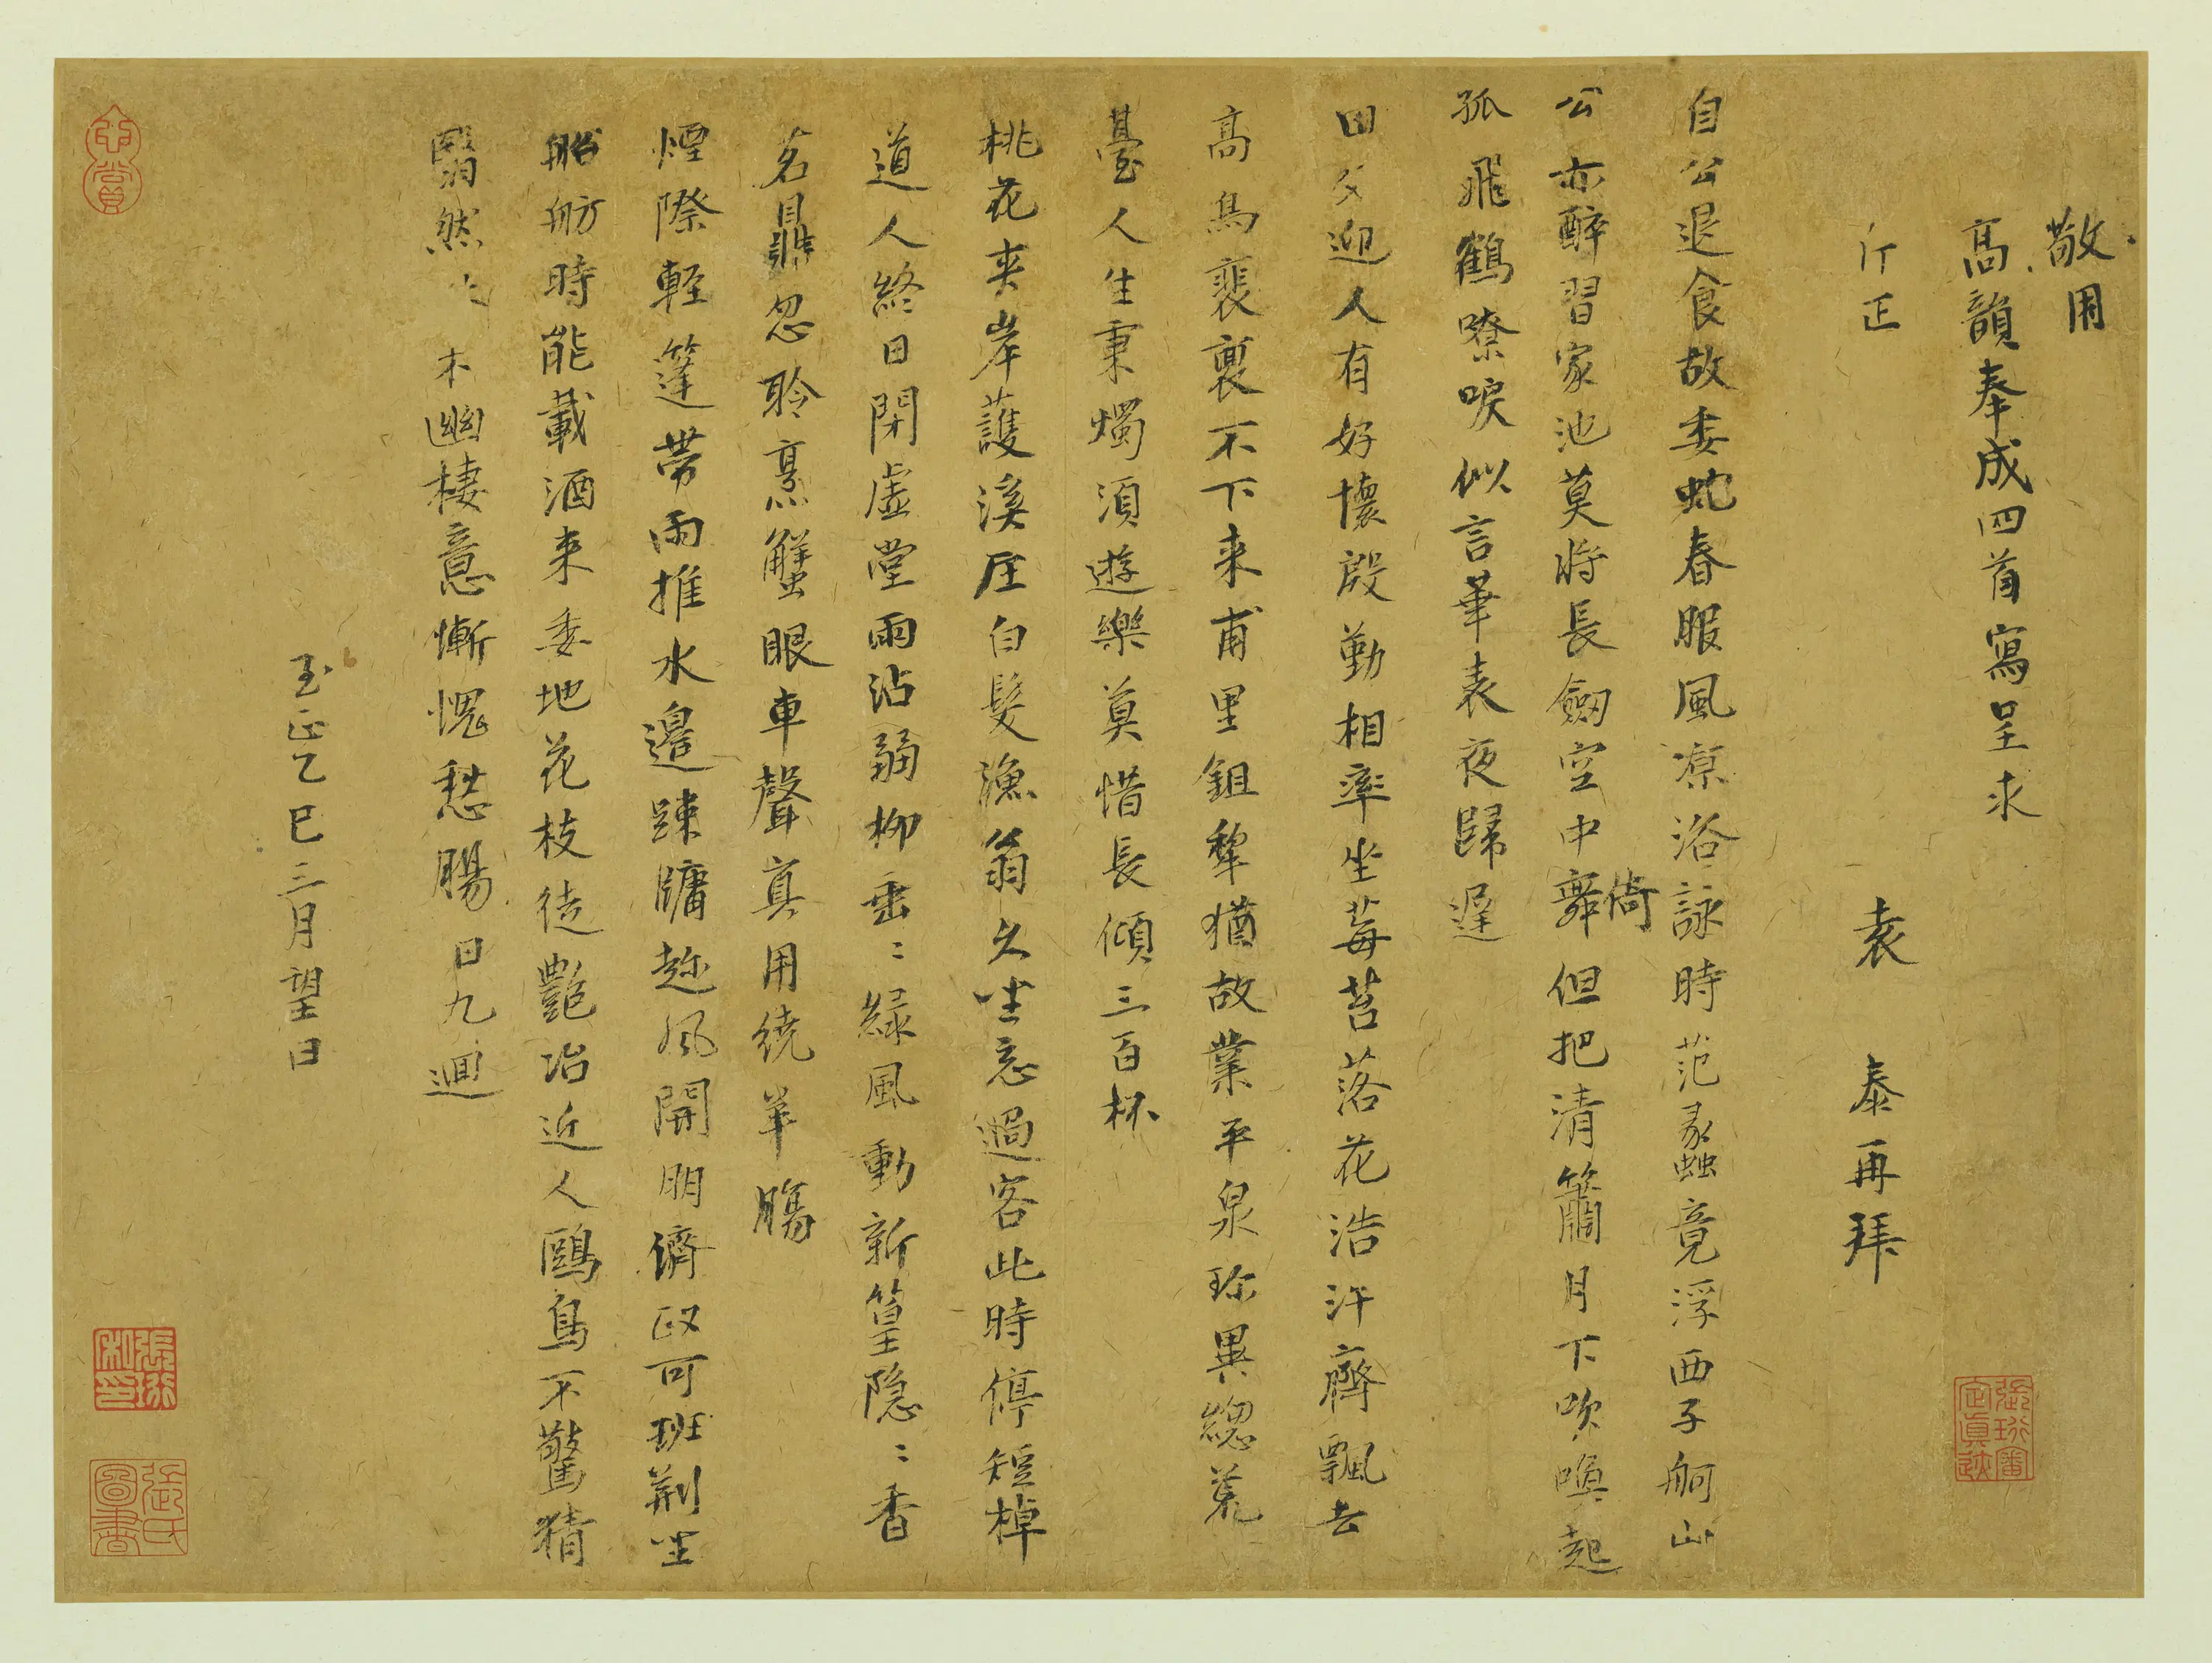 敬用
高韻奉成四首寫呈求
斤正
袁泰再拜
自公退食故委蛇春服風凉浴詠時范蠡竟浮西子舸山
公亦醉習家池莫將長劒空中舞倚但把清簫月下吹喚起
孤飛鶴嘹唳似言華表夜歸遲
田父迎人有好懷殷勤相率坐莓苔落花浩汗齊飄去
高鳥裴褱不下来甫里鉏犂猶故業平泉珎異總荒
臺人生秉燭須遊樂莫惜長傾三百杯
桃花夹岸護溪庄白髮漁翁久坐忘過客此時停短棹
道人終日閉虛堂雨沾弱柳垂〻緑風動新篁隠〻香
茗鼎忽聆烹蟹眼車聲真用繞羊腸
煙際輕篷带雨推水邊踈牖趂風開朋儕政可班荆坐
船舫時能載酒来委地花枝徒艷冶近人鷗鳥不驚猜
翳然木幽棲意慚愧愁腸日九迴
至正乙巳三月望日
張珩私印
張氏圖書